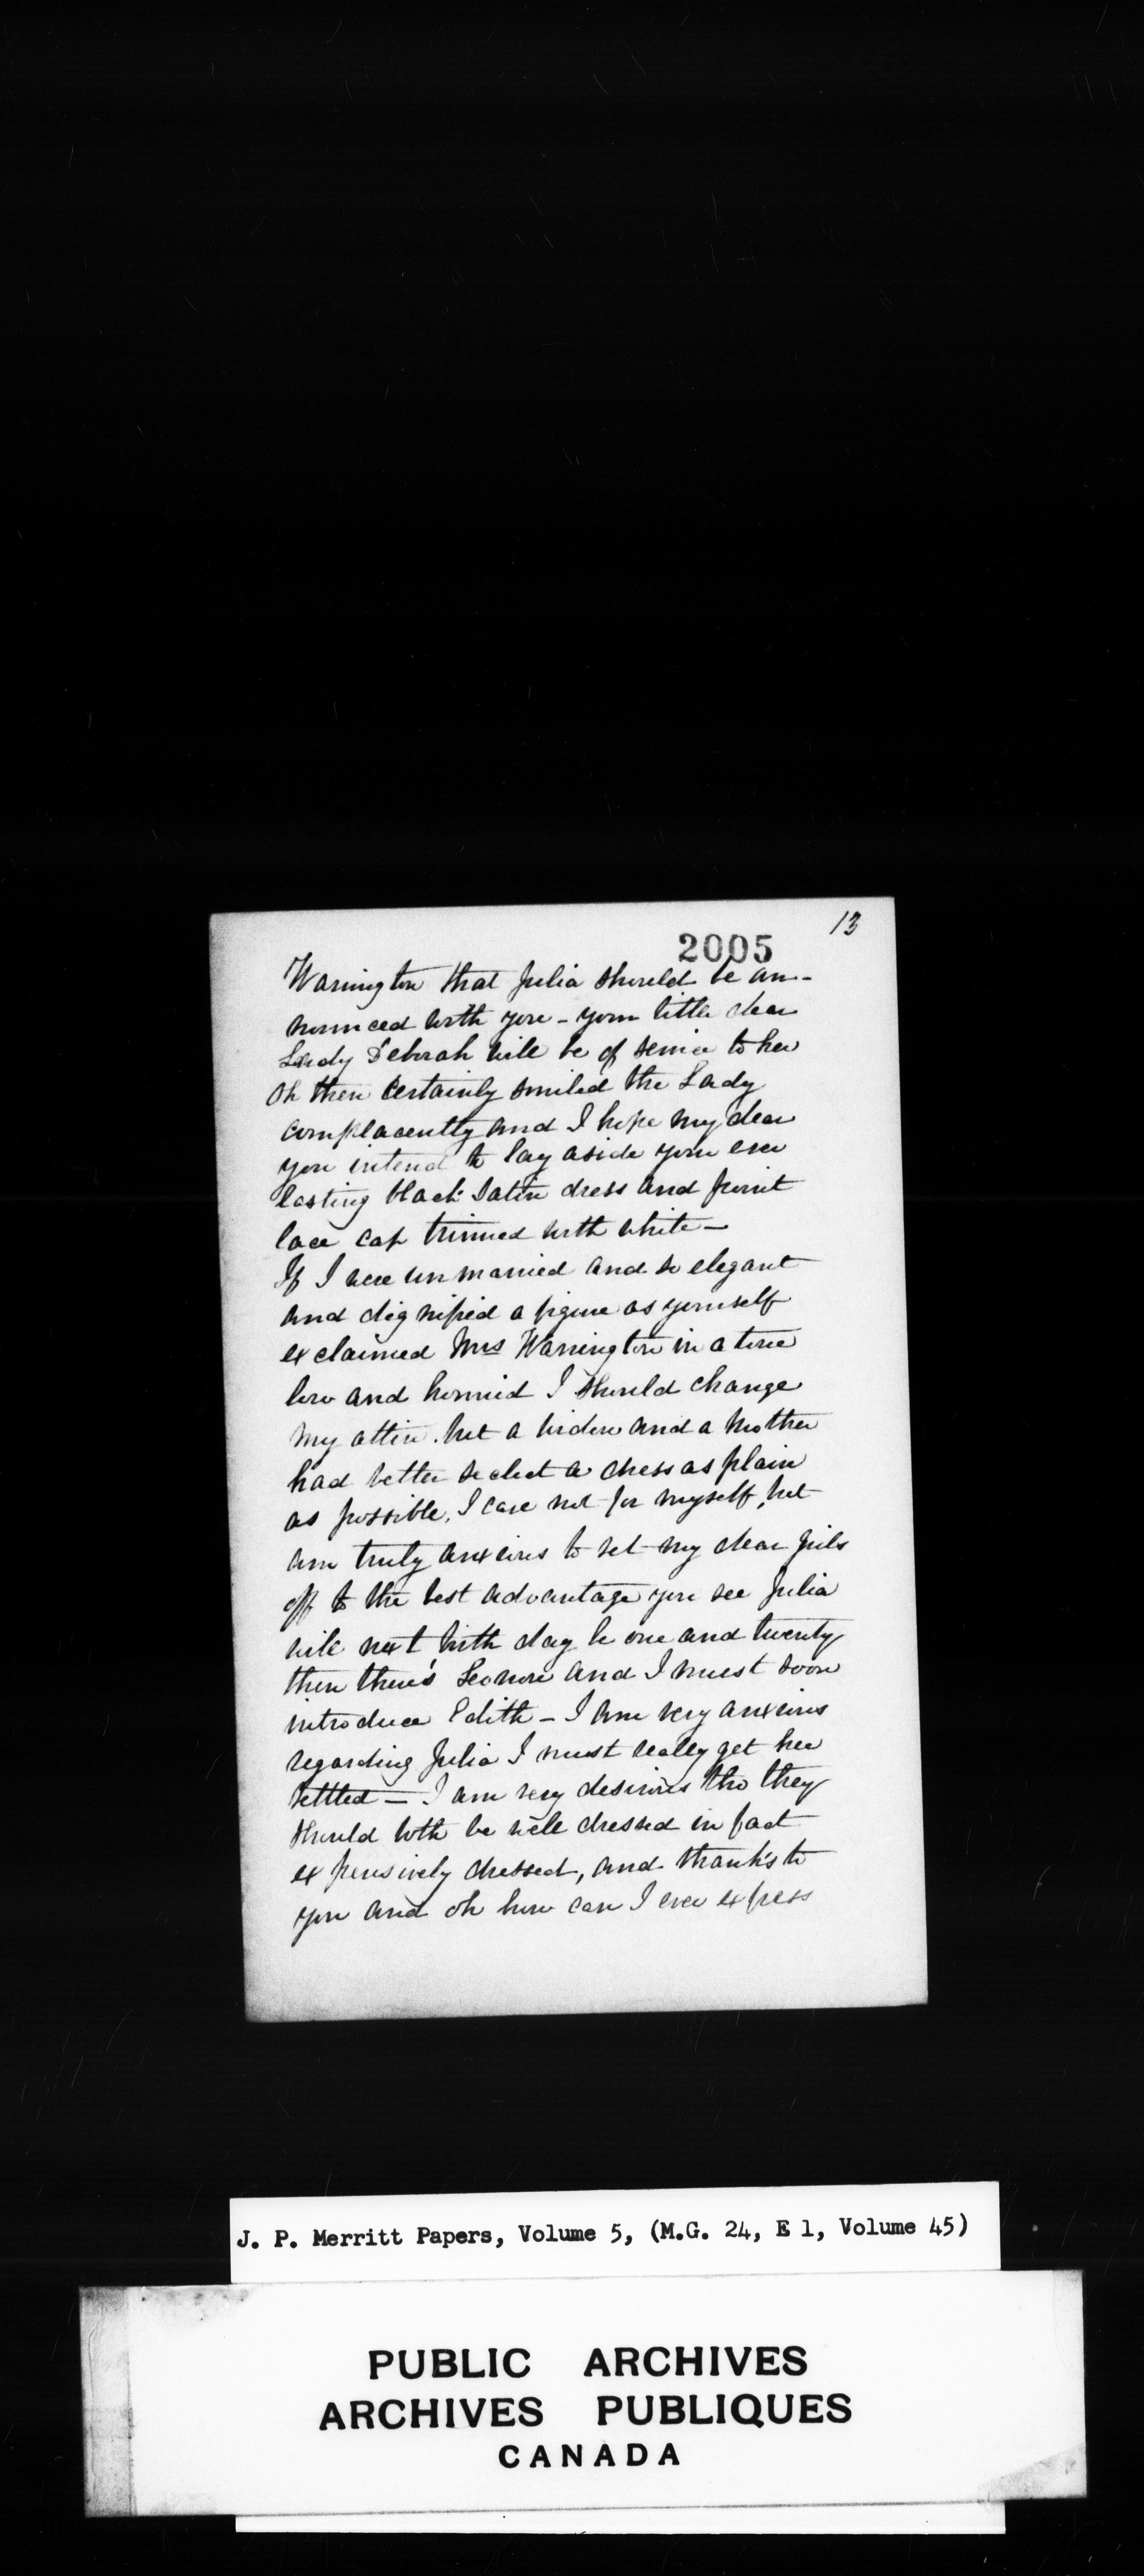 13
2005
Warrington that Julia should be an-
nounced with you - your little dear
Lady Deborah will be of service to her
Oh then certainly smiled the Lady
complacently and I hope my dear
you intend to lay aside your ever
lasting black satin dress and point
lace cap trimmed with white —
If I were unmarried and so elegant
and dignified a figure as yourself
exclaimed Mrs Warrington in a tone
low and hurried I should change
my attire. but a widow and a mother
had better select a dress as plain
as possible, I care not for myself, but
am truly anxious to set my dear girls
off to the best advantage you see Julia
will next birth day be one and twenty
then there's Leonore and I must soon
introduce Edith - I am very anxious
regarding Julia I must really get her
settled — I am very desirous tho they
should both be well dressed in fact
expensively dressed, and thank's to
you and oh how can I ever express
J. P. Merritt Papers, Volume 5, (M.G. 24, E 1, Volume 45)
PUBLIC ARCHIVES
ARCHIVES PUBLIQUES
CANADA